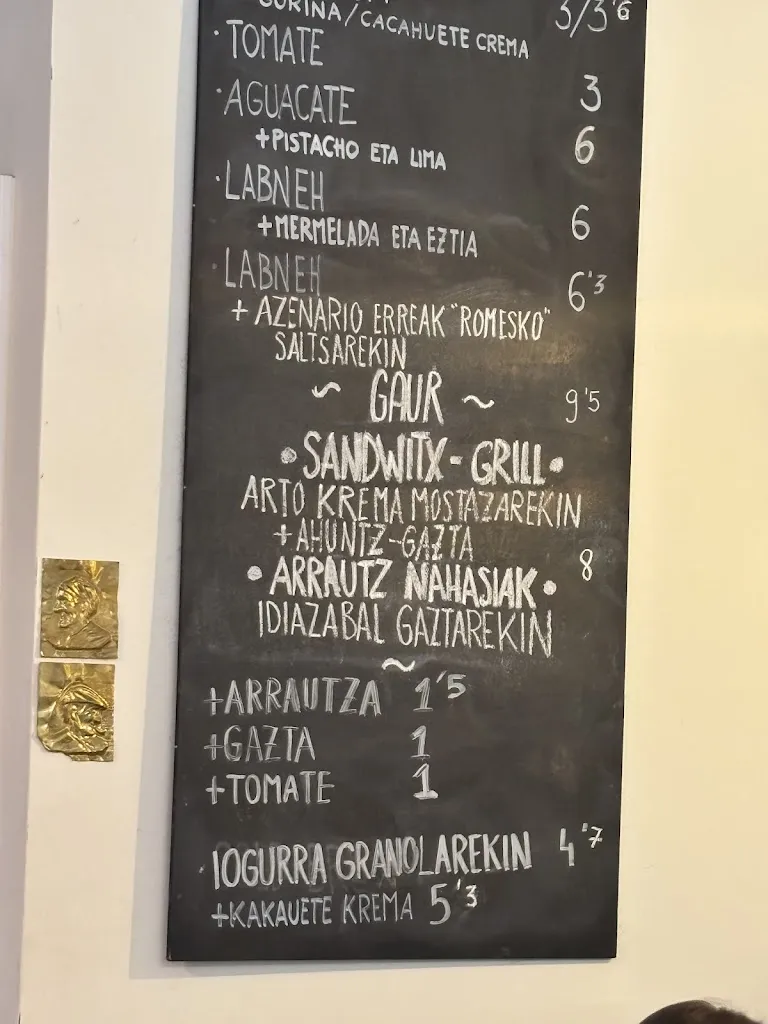 GURINA/CACAHUETE CREMA 3/3'6
· TOMATE
· AGUACATE 3
+PISTACHO ETA LIMA 6
· LABNEH
+MERMELADA ETA EZTIA 6
· LABNEH 6'3
+ AZENARIO ERREAK "ROMESKO"
SALTSAREKIN
~ GAUR ~ 9'5
• SANDWITX-GRILL •
ARTO KREMA MOSTAZAREKIN
+AHUNTZ-GAZTA
• ARRAUTZ NAHASIAK • 8
IDIAZABAL GAZTAREKIN
~
+ARRAUTZA 1'5
+GAZTA 1
+TOMATE 1
· IOGURRA GRANOLAREKIN 4'7
+KAKAUETE KREMA 5'3